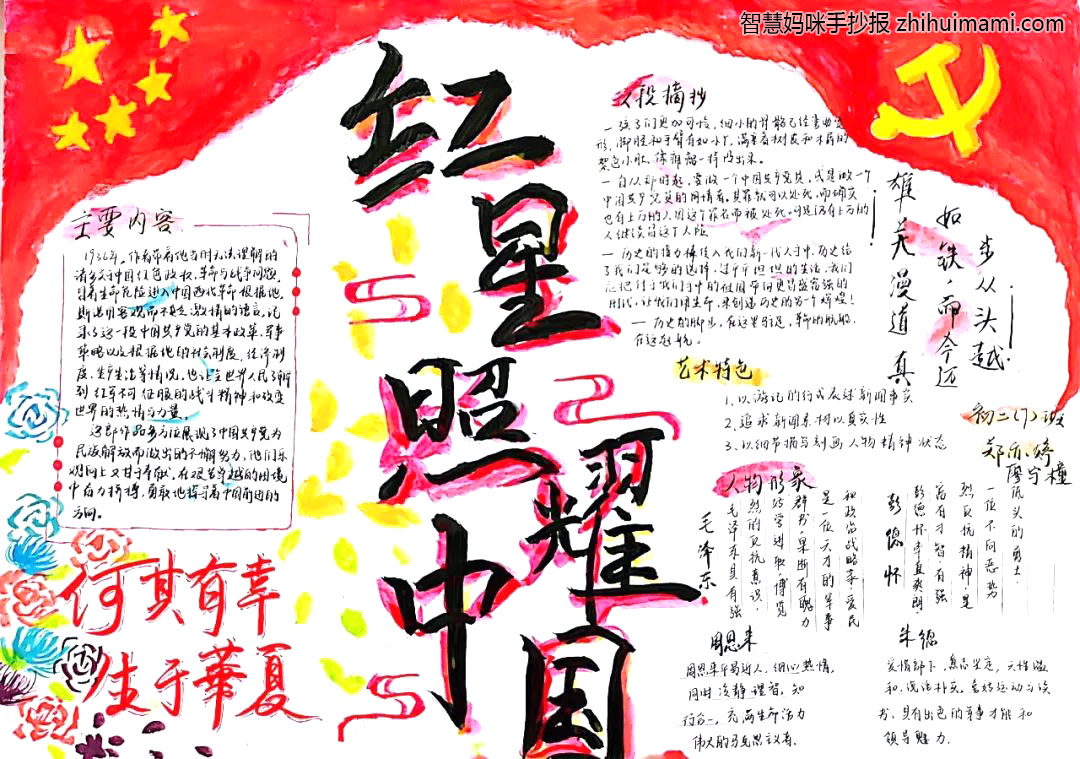 智慧妈咪手抄报 zhihuimami.com
红星照耀中国
主要内容
1936年。作者带着他当时无法理解的
请多关于中国红色政权、革命与战争问题,
冒着生命危险进入中国西北革命根据地。
斯诺用客观而不乏激情的语言,记
录了这一段中国共产党的基本改革,军事
策略以及根据地的社会制度,经济制
度,生产生活等情况。也让全世界人民了解
到红军不可征服的战斗精神和改变
世界的热情与力量。
这部作品多方位展现了中国共产党为
民族解放而做出的不懈努力,他们乐
观向上又甘于奉献,在艰苦卓越的困境
中奋力拼搏,勇敢地探寻着中国前进的
方向。
何其有幸
生于華夏
段摘抄
一孩子们更加可怜,细小的骨骼已经弯曲变
形,
一自从那时起,要做一个中国共产党员,或是做一个
中国共产党员的同情者,其罪就可以处死。而确实
也有上万的人因这个罪名而被处死。可是仍有上万的
人继续冒这个人险
一历史的接力棒传入我们新一代人手中,历史给
了我们足够的选择,过平平坦坦的生活,我们
时代,让我们用生命,来创造历史的另一个辉煌!
一历史的脚步,在这里驻足,革命的航船,
在这起航。
雄关漫道真
如铁,而今迈
步从头越
艺术特色
1、以游记的形式表述新闻事实
2、追求新闻素材以真实性
3、以细节描写刻画人物精神状态
初二(7)班
人物形象
毛泽东
毛泽东具有强
烈的反抗意识,
好学进取博览
群书,果断有魄力
是一位天才的军事
和政治战略家,爱民
彭德怀
彭德怀率直爽朗
富有才智,有强
烈反抗精神,是
一位不向恶势
低头的勇士.
周恩来
周恩来平易近人,细心热情,
同时冷静理智,知
行合一,充满生命活力
伟大的马克思主义者.
朱德
爱惜部下,意志坚定,天性温
和,说话朴实,喜好运动与读
书,具有出色的军事才能和
领导魅力.